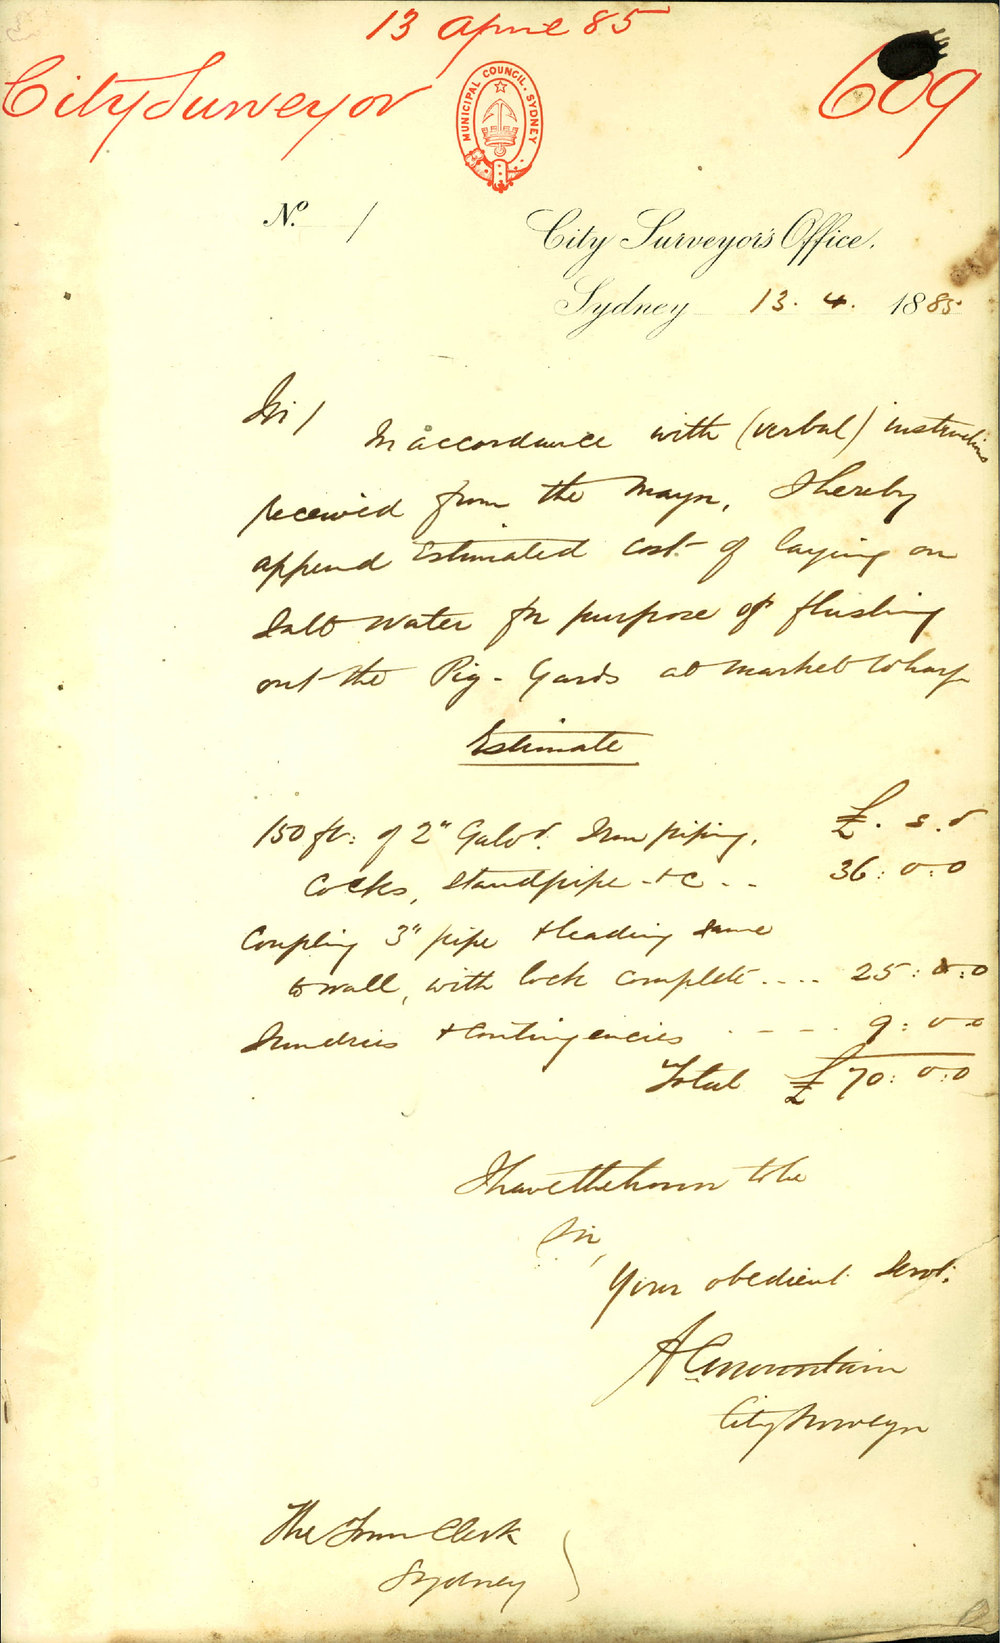 13 April 85
City Surveyor
609
MUNICIPAL COUNCIL. SYDNEY
No. /
City Surveyor's Office.
Sydney 13. 4. 1885
Sir /
In accordance with (verbal) instructions
received from the Mayor, I hereby
append Estimated cost of laying on
Salt Water for purpose of flushing
out the Pig-Yards at Market Wharf
Estimate
150 ft: of 2" Galvd. Iron piping, £. s. d
Cocks, Standpipe &c - - 36: 0: 0
Coupling 3" pipe & leading same
to wall, with Cock complete .... 25: 0: 0
Sundries & Contingencies - - - - 9: 0 0
Total £70: 0: 0
I have the honor to be
Sir,
Your obedient Servt.
A C Mountain
City Surveyor
The Town Clerk
Sydney